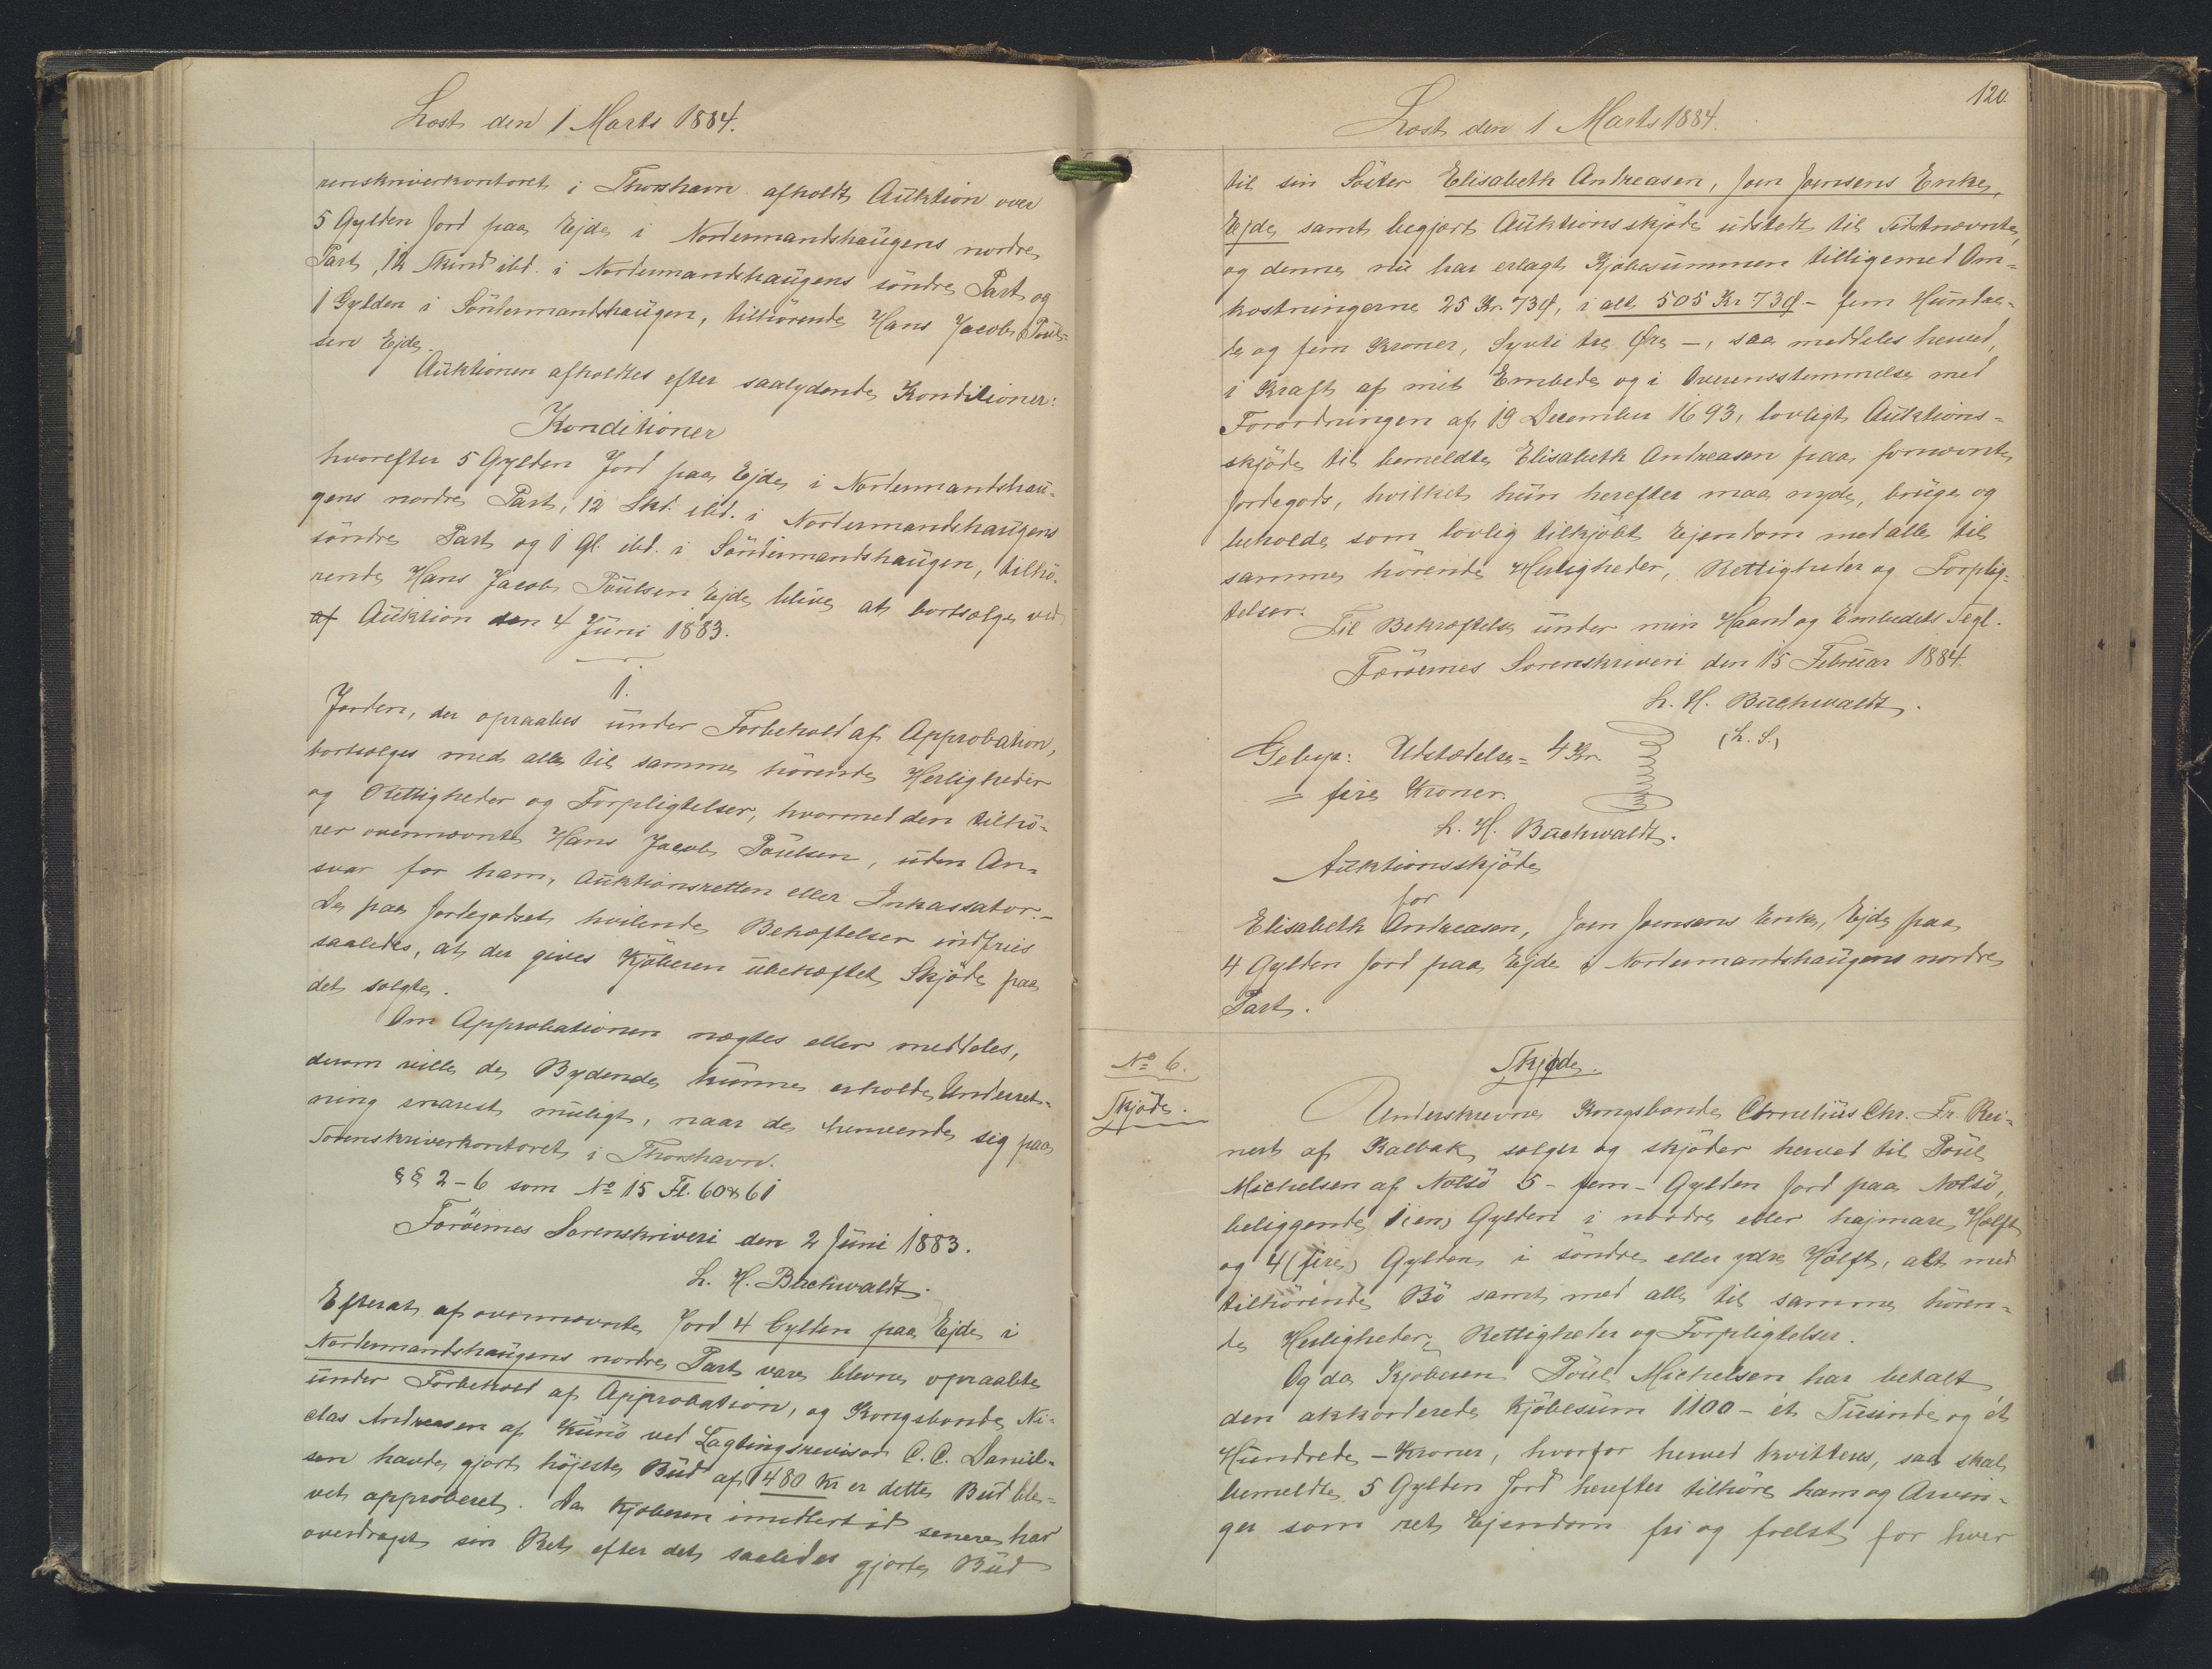 Læst den 1 Marts 1884.
renskriverkontoret i Thorshavn afholdt Auktion over
5 Gylden Jord paa Ejde i Nordermandshaugens nordre
Part, 12 Skind ibd. i Nordermandshaugens söndre Part og
1 Gylden i Söndermandshaugen, tilhörende Hans Jacob Poul-
sen Ejde.
Auktionen afholdtes efter saalydende Konditioner:
Konditioner
hvorefter 5 Gylden Jord paa Ejde i Nordermandshau-
gens nordre Part, 12 Skd. ibd. i Nordermandshaugens
söndre Part og 1 Gl. ibd. i Söndermandshaugen, tilhö-
rende Hans Jacob Poulsen Ejde bliver at bortsælge ved
af Auktion den 4 Juni 1883.
1.
Jorden, der opraabes under Forbehold af Approbation,
bortsælges med alle til samme hörende Herligheder
og Rettigheder og Forpligtelser, hvormed den tilhö-
rer ovennævnte Hans Jacob Poulsen, uden An-
svar for ham, Auktionsretten eller Inkassator.-
De paa Jordegodset hvilende Behæftelser indfries
saaledes, at der gives Kjöberen ubehæftet Skjöde paa
det solgte.
Om Approbationen nægtes eller meddeles,
derom ville de Bydende kunne erholde Underret-
ning snarest muligt, naar de henvende sig paa
Sorenskriverkontoret i Thorshavn.
§§ 2-6 som No 15 Fl. 60 & 61
Færöernes Sorenskriveri den 2 Juni 1883.
L. H. Buchwaldt.
Efterat af ovennævnte Jord 4 Gylden paa Ejde i
Nordermandshaugens nordre Part vare blevne opraabte
under Forbehold af Approbation, og Kongsbonde Ni-
clas Andreasen af Kunö ved Lagtingsrevisor C. C. Daniel-
sen havde gjort höjeste Bud af 480 Kr er dette Bud ble-
vet approberet. Da Kjöberen imidlertid senere har
overdraget sin Ret efter det saaledes gjorte Bud
120
Læst den 1 Marts 1884.
til sin Söster Elisabeth Andreasen, Joen Joensens Enke,
Ejde samt begjært Auktionsskjöde udstedt til Sidstnævnte,
og denne nu har erlagt Kjöbesummen tilligemed Om-
kostningerne 25 Kr. 73 Ø, i alt 505 Kr 73 Ø - fem Hundre-
de og fem Kroner, Syvti tre Øre -, saa meddeles herved,
i Kraft af mit Embede og i Overensstemmelse med
Forordningen af 19 December 1693, lovligt Auktions-
skjöde til bemeldte Elisabeth Andreasen paa fornævnte
Jordegods, hvilket hun herefter maa nyde, bruge og
beholde som lovlig tilkjöbt Ejendom med alle til
samme hörende Herligheder, Rettigheder og Forplig-
telser.
Til Bekræftelse under min Haand og Embedets Segl.
Færöernes Sorenskriveri den 15 Februar 1884.
L. H. Buchwaldt.
(L. S.)
Gebyr: Udstædelse = 4 Kr.
= fire Kroner.
L. H. Buchwaldt.
Auktionsskjöde
for
Elisabeth Andreasen, Joen Joensens Enke, Ejde paa
4 Gylden Jord paa Ejde i Nordermandshaugens nordre
Part.
No 6.
Skjöde.
Skjöde.
Underskrevne Kongsbonde Cornelius Chr. Fr. Rei-
nert af Kalbak sælger og skjöder herved til Poul
Michelsen af Nolsö 5 - fem - Gylden Jord paa Nolsö,
beliggende 1 (en) Gylden i nordre eller hajmare Hælft
og 4 (fire) Gylden i söndre eller ydre Hælft, alt med
tilhörende Bö samt med alle til samme hören-
de Herligheder, Rettigheder og Forpligtelser.
Og da Kjöberen Poul Michelsen har betalt
den akkorderede Kjöbesum 1100 - ét Tusinde og ét
Hundrede - Kroner, hvorfor herved kvitteres, saa skal
bemeldte 5 Gylden Jord herefter tilhöre ham og Arvin-
ger som ret Ejendom fri og frelst for hver